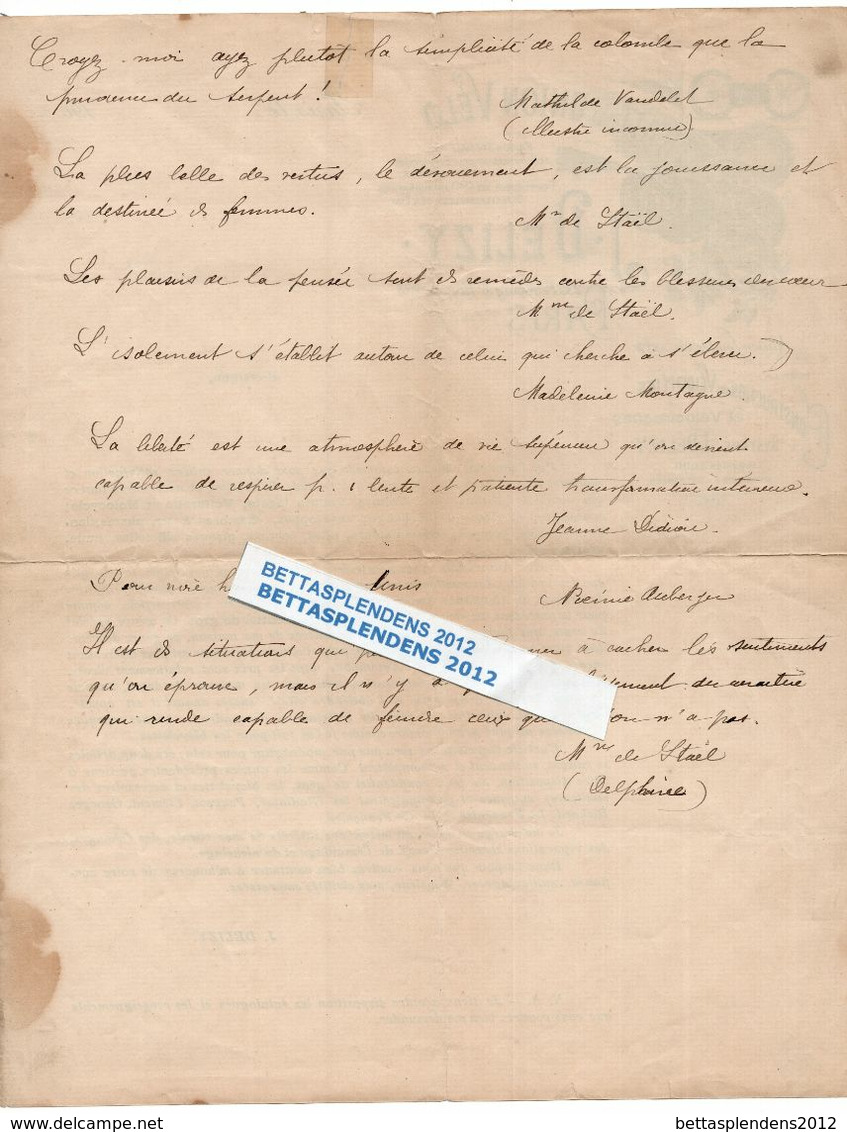 Croyez-moi ayez plutôt la simplicité de la colombe que la
prudence du serpent !
Mathilde Vaudelet
(illustre inconnue)
La plus belle des vertus, le dévouement, est la jouissance et
la destinée ds femmes.
Mme de Staël.
Les plaisirs de la pensée sont ds remèdes contre les blessures du cœur
Mme de Staël.
L'isolement s'établit autour de celui qui cherche à s'élever.
Madeleine Montagne.
La liberté est une atmosphère de vie supérieure qu'on devient
capable de respirer p. 1 lente et patiente transformation intérieure.
Jeanne Didion.
Pour unis
Noémie Auberger
Il est ds situations qui à cacher les sentiments
qu'on éprouve, mais il n'y a du caractère
qui rende capable de feindre ceux que l'on n'a pas.
Mme de Staël
(Delphine)
BETTASPLENDENS 2012
BETTASPLENDENS 2012
DELIZY
J. DELIZY
delcampe.net
bettasplendens2012